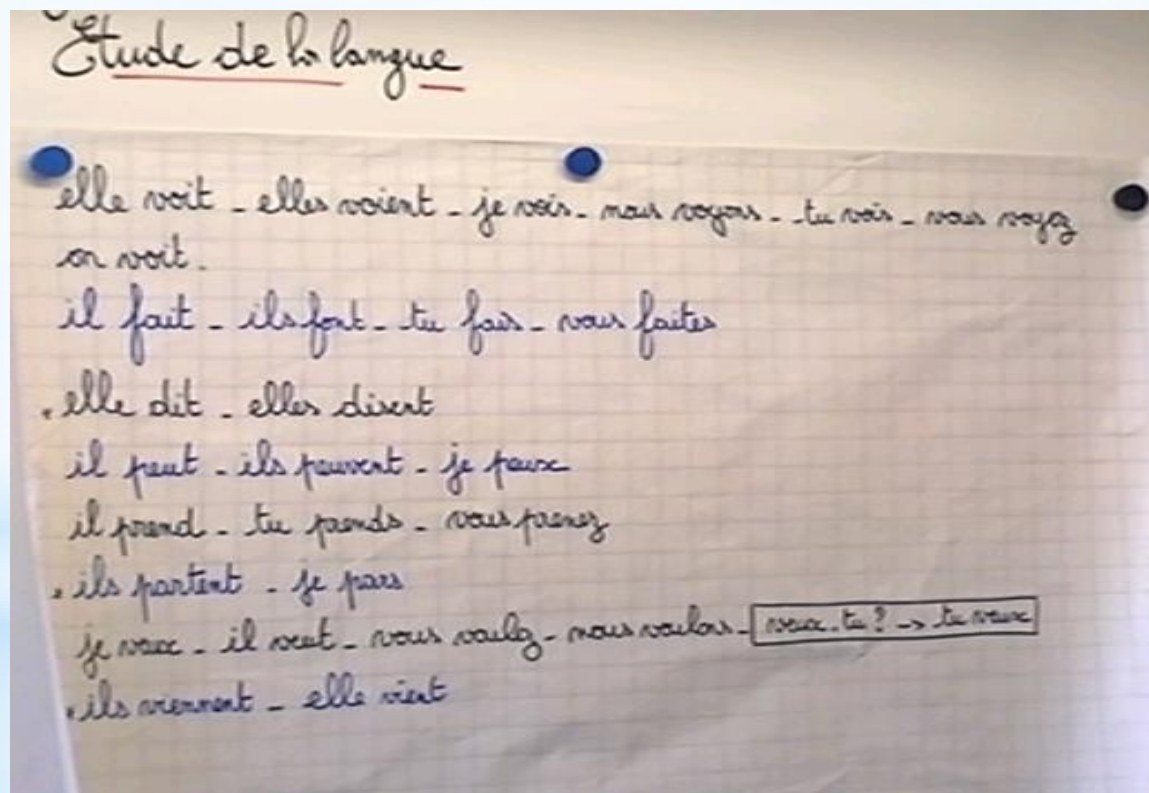 Etude de la langue
elle voit - elles voient - je vois - nous voyons - tu vois - vous voyez
on voit.
il fait - ils font - tu fais - vous faites
. elle dit - elles disent
il peut - ils peuvent - je peux
il prend - tu prends - vous prenez
. ils partent - je pars
je veux - il veut - vous voulez - nous voulons - veux-tu ? -> tu veux
. ils viennent - elle vient